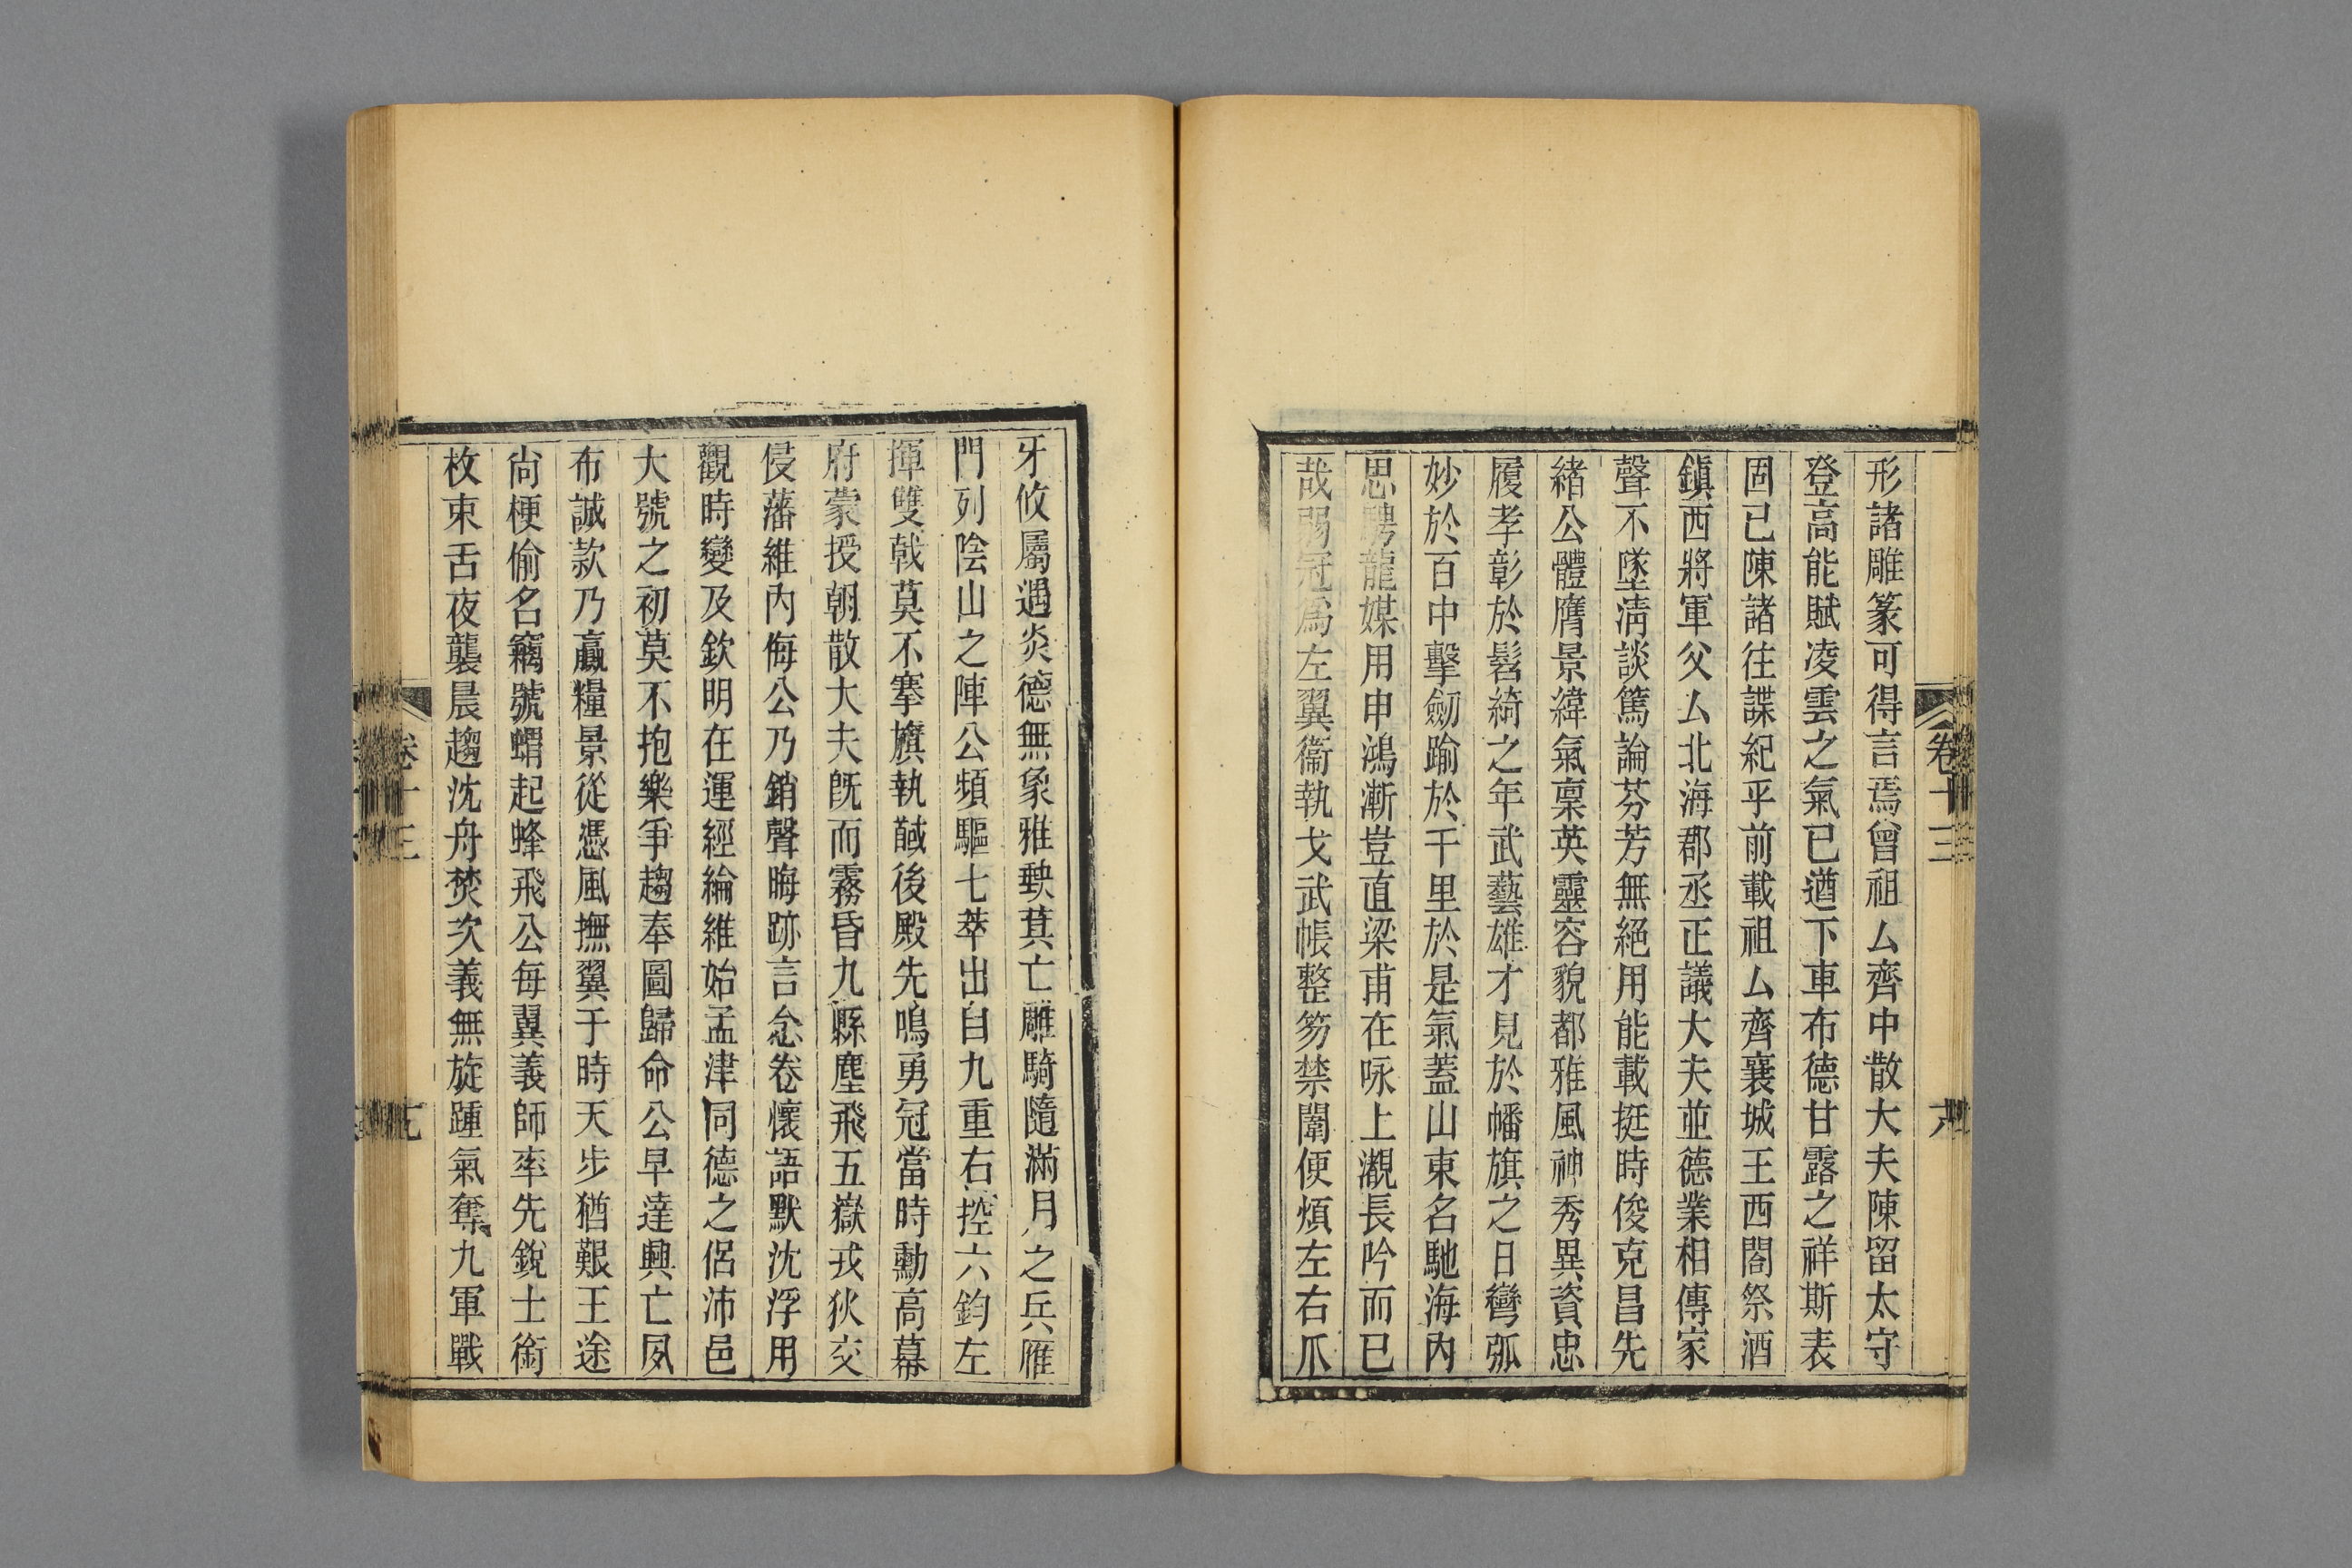 形諸雕篆可得言焉曾祖厶齊中散大夫陳留太守
登高能賦凌雲之氣已遒下車布德甘露之祥斯表
固已陳諸往諜紀乎前載祖厶齊襄城王西閤祭酒
鎭西將軍父厶北海郡丞正議大夫並德業相傳家
聲不墜淸談篤論芬芳無絕用能載挺時俊克昌先
緖公體膺景緯氣稟英靈容貌都雅風神秀異資忠
履孝彰於髫綺之年武藝雄才見於幡旗之日彎弧
妙於百中擊劒踰於千里於是氣蓋山東名馳海內
思騁龍媒用申鴻漸豈直梁甫在咏上㶜長吟而已
哉弱冠爲左翼衞執戈武帳整笏禁闈便煩左右爪
卷十三
六
牙攸屬遇炎德無象雅埶其亡雕騎隨滿月之兵雁
門列陰山之陣公頻驅七萃出自九重右控六鈞左
揮雙戟莫不搴旗執馘後殿先鳴勇冠當時勳高幕
府蒙授朝散大夫旣而霧昏九縣塵飛五嶽戎狄交
侵藩維內侮公乃銷聲晦跡言念卷懷語默沈浮用
觀時變及欽明在運經綸維始孟津同德之侶沛邑
大號之初莫不抱樂爭趨奉圖歸命公早達興亡夙
布誠款乃贏糧景從憑風撫翼于時天步猶艱王途
尙梗偷名竊號蝟起蜂飛公每翼義師率先銳士銜
枚束舌夜襲晨趨沈舟焚次義無旋踵氣奪九軍戰
卷十三
七